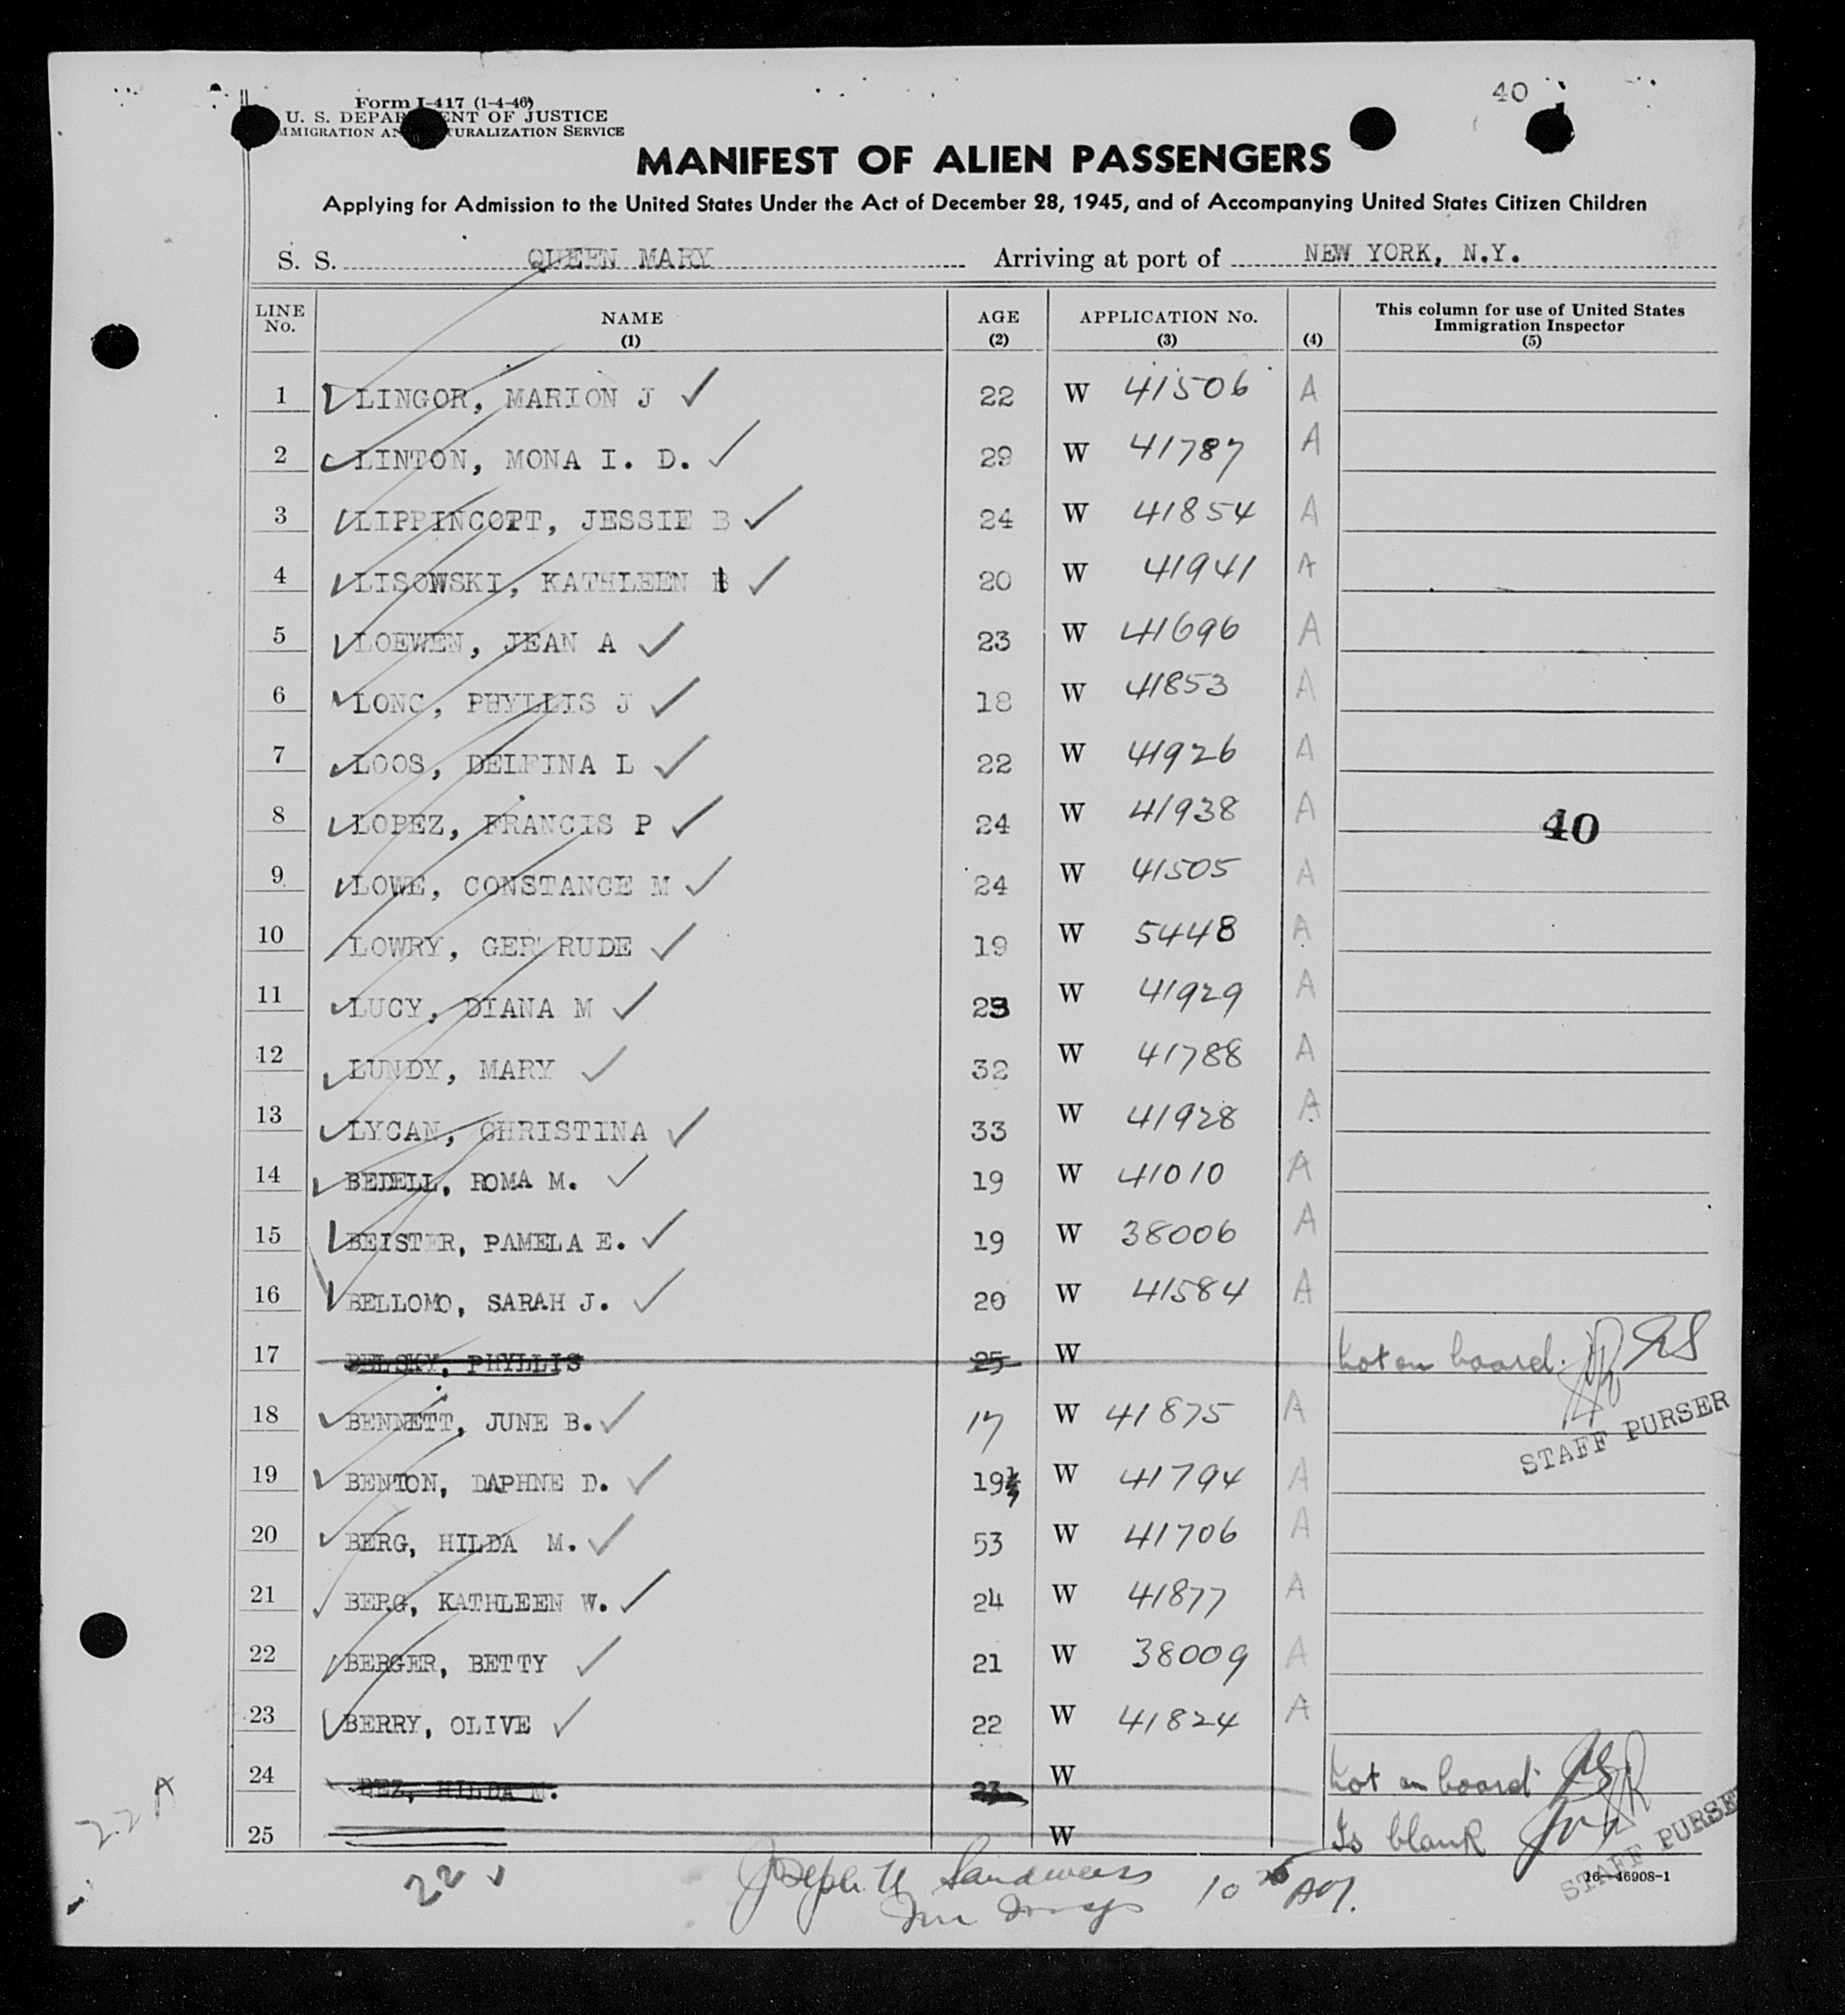 40
Form I-417 (1-4-46)
U. S. DEPARTMENT OF JUSTICE
IMMIGRATION AND NATURALIZATION SERVICE
MANIFEST OF ALIEN PASSENGERS
Applying for Admission to the United States Under the Act of December 28, 1945, and of Accompanying United States Citizen Children
S. S. QUEEN MARY Arriving at port of NEW YORK, N.Y.
LINE No. NAME (1) AGE (2) APPLICATION No. (3) (4) This column for use of United States Immigration Inspector (5)
1 LINGOR, MARION J 22 W 41506 A
2 LINTON, MONA I. D. 29 W 41787 A
3 LIPPINCOTT, JESSIE B 24 W 41854 A
4 LISOWSKI, KATHLEEN 20 W 41941 A
5 LOEWEN, JEAN A 23 W 41696 A
6 LONC, PHYLLIS J 18 W 41853 A
7 LOOS, DELFINA L 22 W 41926 A
8 LOPEZ, FRANCIS P 24 W 41938 A 40
9 LOWE, CONSTANCE M 24 W 41505 A
10 LOWRY, GERTRUDE 19 W 5448 A
11 LUCY, DIANA M 23 W 41929 A
12 LUNDY, MARY 32 W 41788 A
13 LYCAN, CHRISTINA 33 W 41928 A
14 BEDELL, ROMA M. 19 W 41010 A
15 BEISTER, PAMELA E. 19 W 38006 A
16 BELLOMO, SARAH J. 20 W 41584 A
17 BELSKY, PHYLLIS 25 W not on board.
18 BENNETT, JUNE B. 17 W 41875 A
STAFF PURSER
19 BENTON, DAPHNE D. 19 W 41794 A
20 BERG, HILDA M. 53 W 41706 A
21 BERG, KATHLEEN W. 24 W 41877 A
22 BERGER, BETTY 21 W 38009 A
23 BERRY, OLIVE 22 W 41824 A
24 BEZ, HILDA M. 23 W not on board
25 W Is blank
STAFF PURSE
22 A
22
Joseph U Sandweiss 10 AM.
16-46908-1